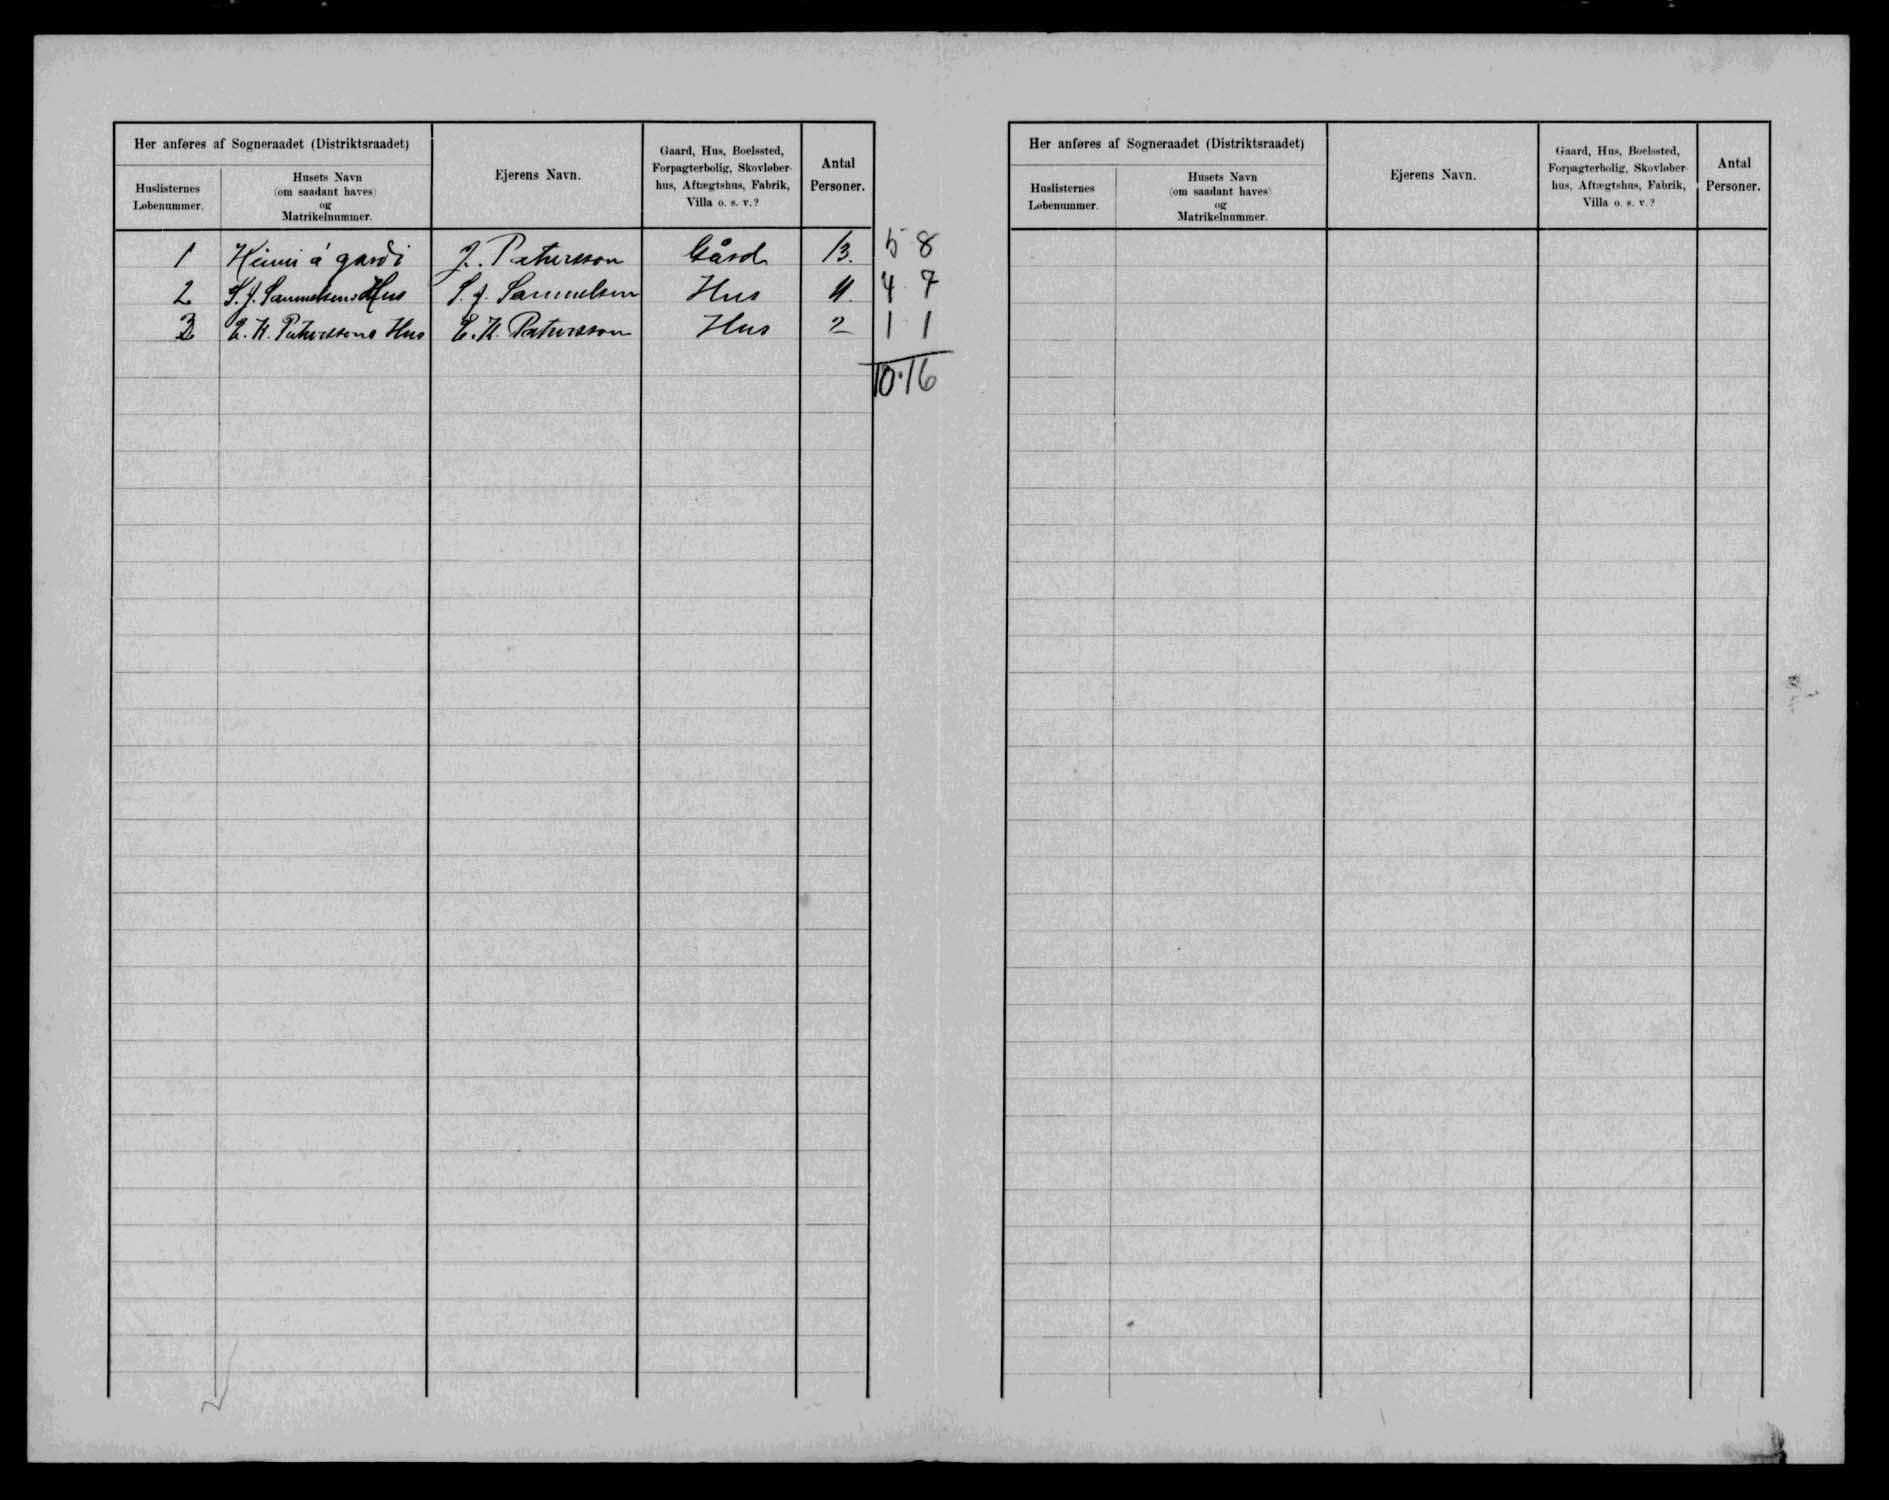 Her anføres af Sogneraadet (Distriktsraadet)
Huslisternes
Løbenummer.
Husets Navn
(om saadant haves)
og
Matrikelnummer.
Ejerens Navn.
Gaard, Hus, Boelssted,
Forpagterbolig, Skovløber-
hus, Aftægtshus, Fabrik,
Villa o. s. v.?
Antal
Personer.
1 Heimi á gardi J. Patursson Gård 13. 5 8
2 S. J. Samuelsens Hus S. J. Samuelsen Hus 11. 4 7
3 E. K. Paturssons Hus E. K. Patursson Hus 2 1 1
10.16
Her anføres af Sogneraadet (Distriktsraadet)
Huslisternes
Løbenummer.
Husets Navn
(om saadant haves)
og
Matrikelnummer.
Ejerens Navn.
Gaard, Hus, Boelssted,
Forpagterbolig, Skovløber-
hus, Aftægtshus, Fabrik,
Villa o. s. v.?
Antal
Personer.